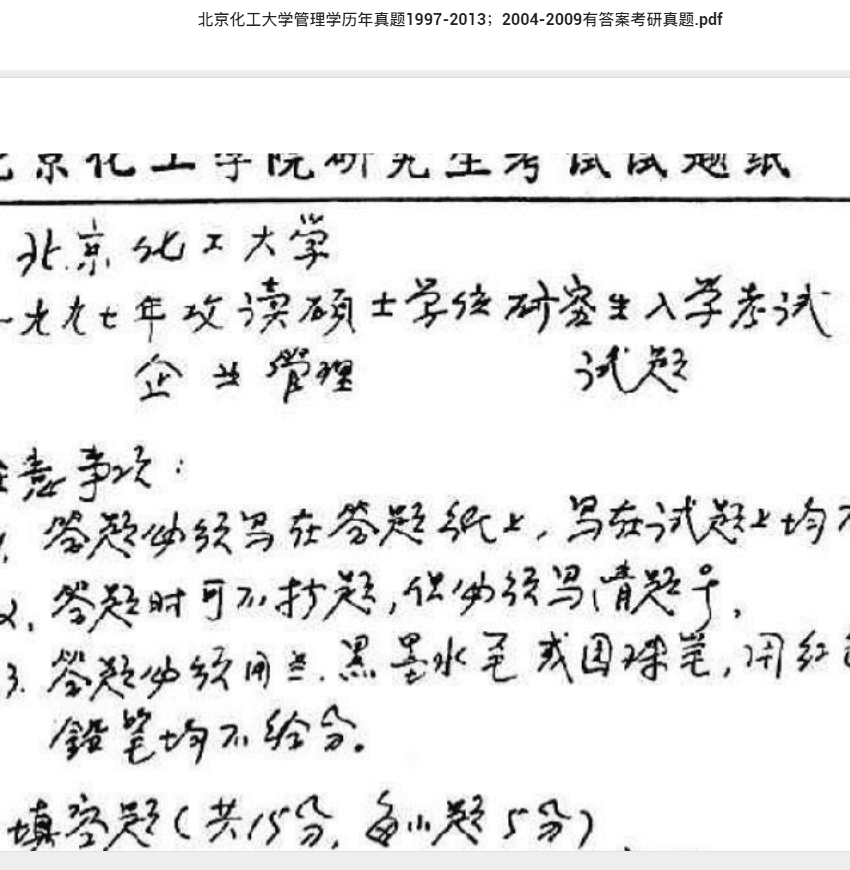 北京化工大学管理学历年真题1997-2013；2004-2009有答案考研真题.pdf
北京化工学院研究生考试试题纸
北京化工大学
一九九七年攻读硕士学位研究生入学考试
企业管理 试题
注意事项：
1. 答题必须写在答题纸上，写在试题上均不
2. 答题时可不抄题，但必须写清题号。
3. 答题必须用兰.黑墨水笔或圆珠笔，用红色
铅笔均不给分。
填空题（共15分，每小题5分）